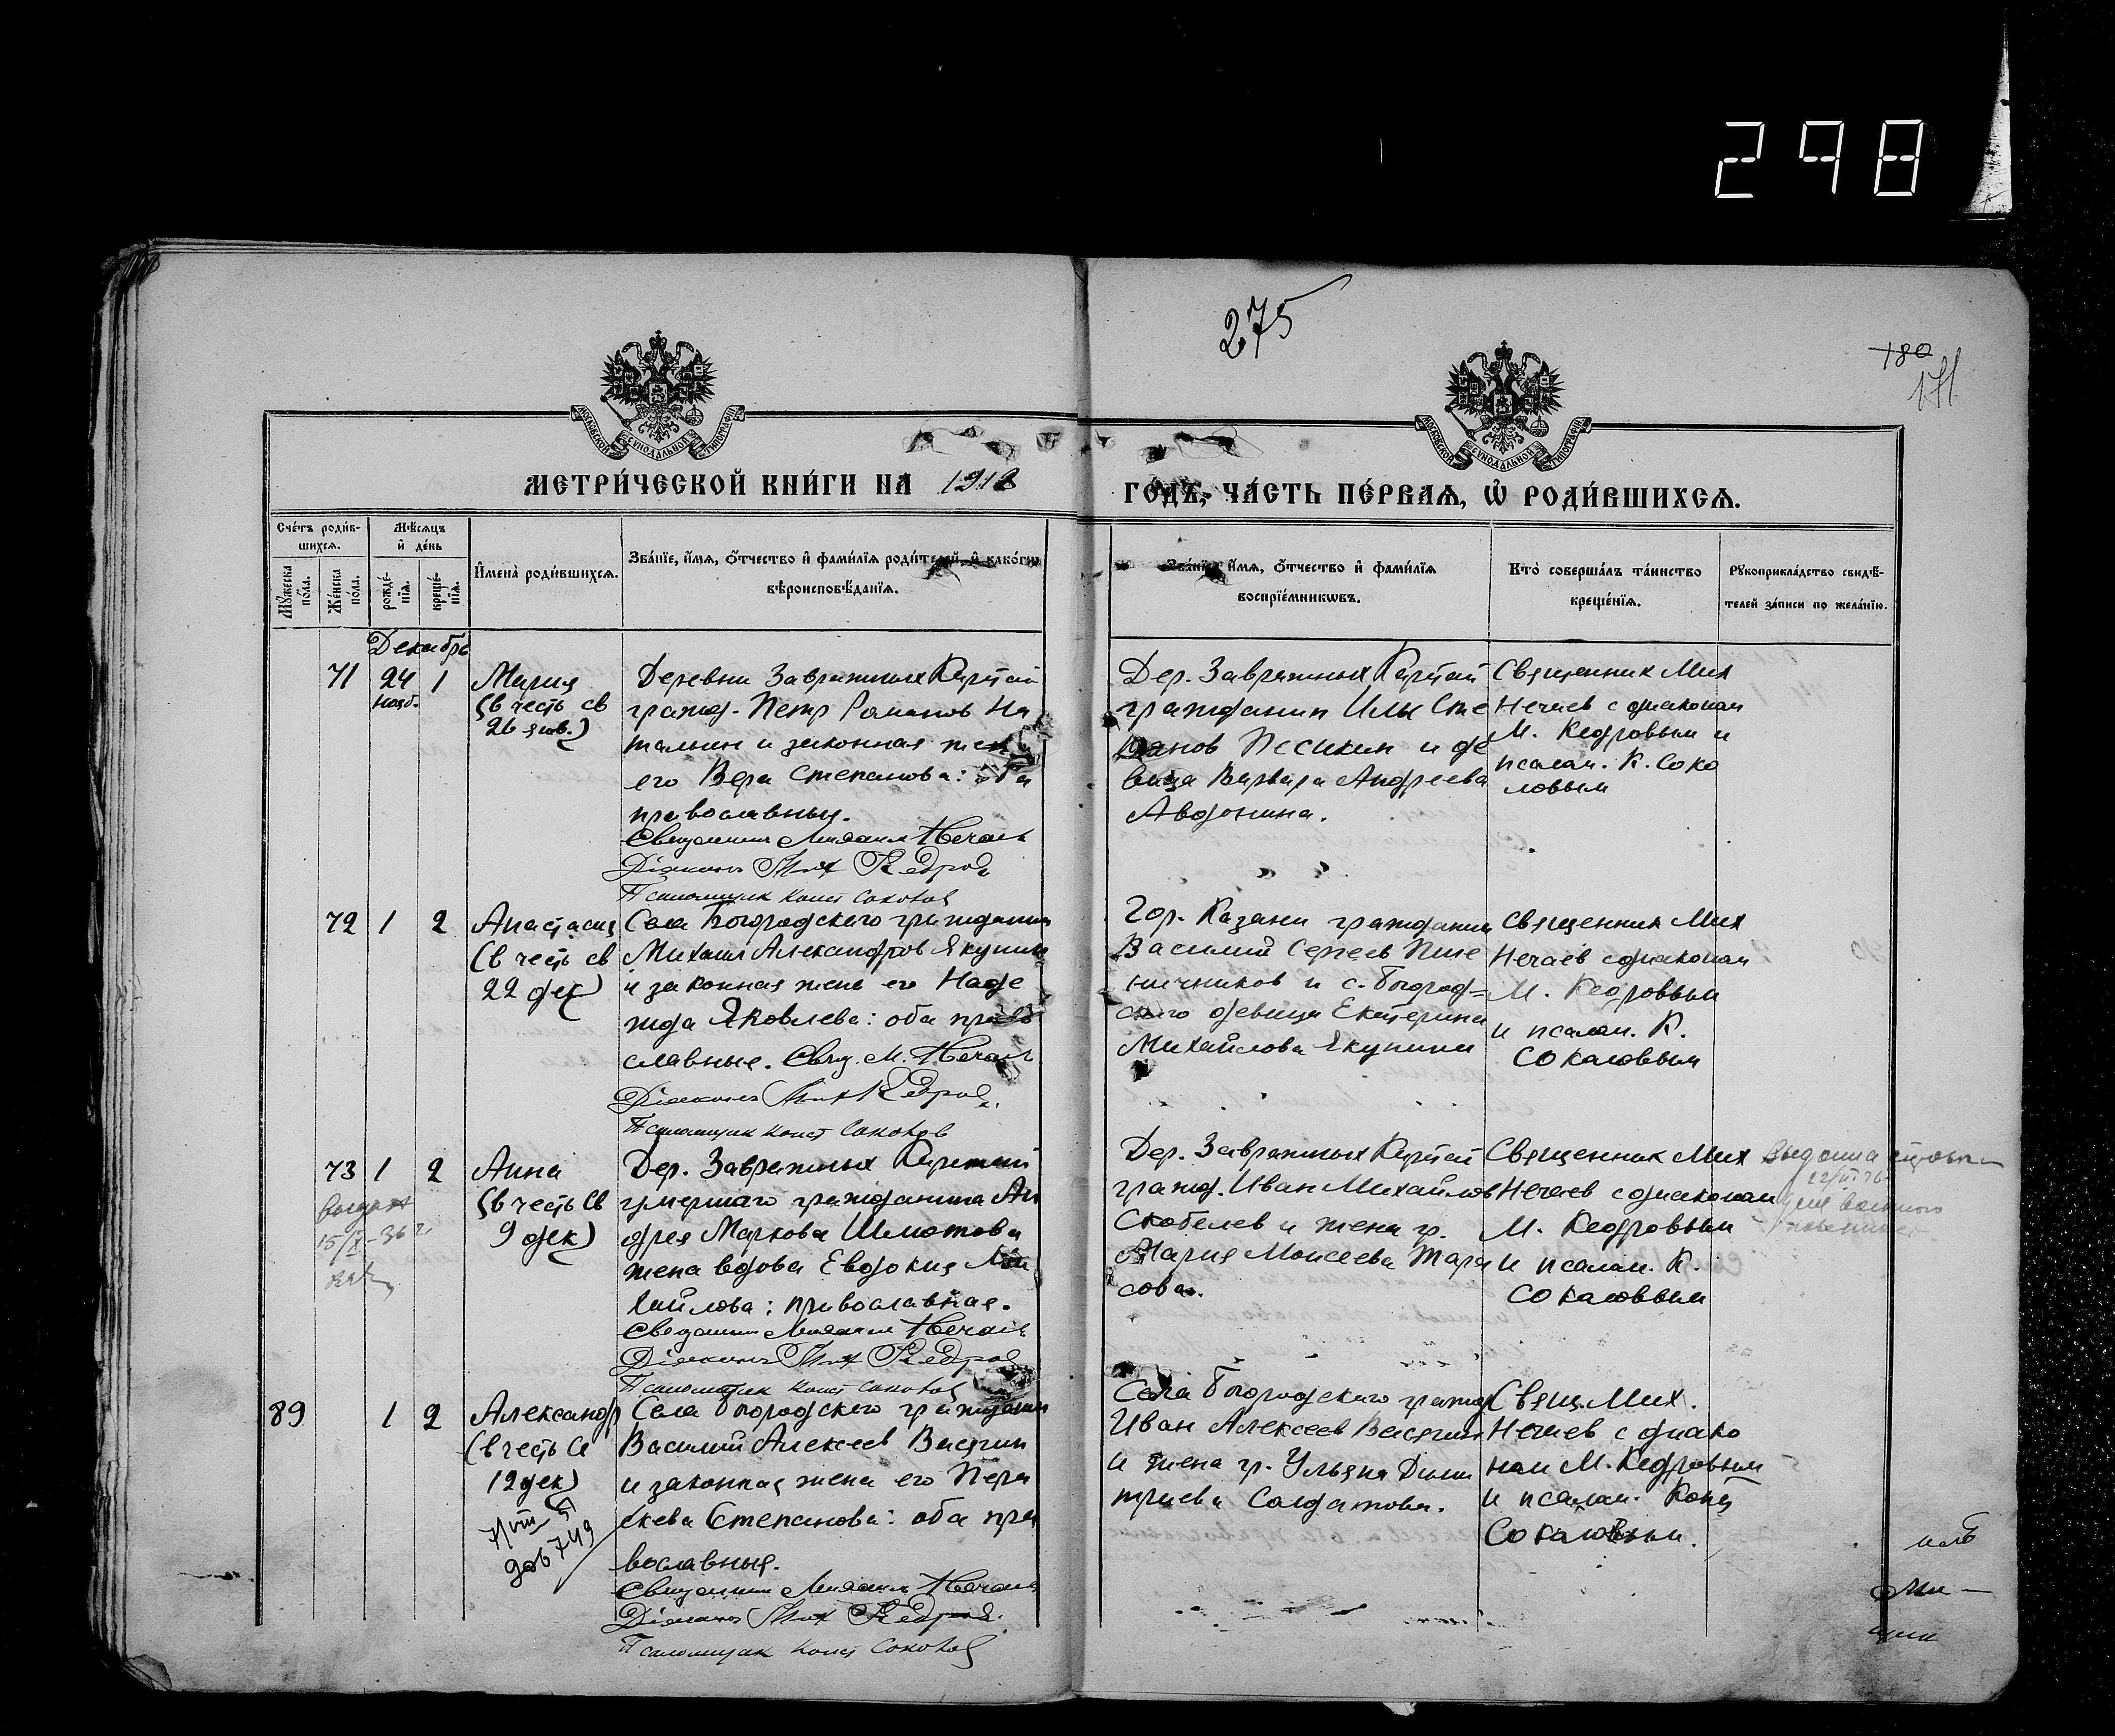 298
275
180
171
МОСКОВСКОЙ СѴНОДАЛЬНОЙ ТИПОГРАФІИ
МОСКОВСКОЙ СѴНОДАЛЬНОЙ ТИПОГРАФІИ
МЕТРИ́ЧЕСКОЙ КНИ́ГИ НА 1918 ГО́ДЪ, ЧА́СТЬ ПЕ́РВАЯ, Ѡ РОДИ́ВШИХСЯ.
Сче́тъ роди́в-
шихся.
Мѣ́сяцъ
и де́нь
Мꙋ́жеска
по́ла.
Же́нска
по́ла.
рожде́-
нїя.
креще́-
нїя.
Имена̀ роди́вшихся.
Зва́нїе, и́мя, о́тчество и фами́лїя роди́телей, и како́гѡ
вѣроисповѣ́данїя.
Зва́нїе, и́мя, о́тчество и фами́лїя
воспрїе́мникѡвъ.
Кто̀ соверша́лъ та́инство
креще́нїя.
Рꙋкоприкла́дство свидѣ́-
телей за́писи по жела́нїю.
Декабрь
71 24 1
нояб.
Мария
(в честь св
26 янв.)
Деревни Завражных Каратай
гражд. Петр Романов На
талын и законная жена
его Вера Степанова: оба
православные.
Священник Михаил Нечаев
Діаконъ Мих Кедров
Псаломщик Конст Соколов
Дер. Завражных Каратай
гражданин Илья Сте
панов Песикин и де
вица Варвара Андреева
Авдонина.
Священник Мих
Нечаев с диаконом
М. Кедровым и
псалом. К. Соко
ловым
72 1 2
Анастасия
(в честь св
22 дек)
Села Богородского гражданин
Михаил Александров Якунин
и законная жена его Наде
жда Яковлева: оба право
славные. Свящ. М. Нечаев
Діаконъ Мих Кедров
Псаломщик Конст Соколов
Гор. Казани гражданин
Василий Сергеев Пше
ничников и с. Богород-
ского девица Екатерина
Михайлова Якунина
Священник Мих
Нечаев с диаконом
М. Кедровым
и псалом. К.
Соколовым
73 1 2
15/X-36 г.
Анна
(в честь св
9 дек)
Дер. Завражных Каратай
умершаго гражданина Ан
дрея Маркова Шмотова
жена вдова Евдокия Ми
хайлова: православная.
Священник Михаил Нечаев
Діаконъ Мих Кедров
Псаломщик Конст Соколов
Дер. Завражных Каратай
гражд. Иван Михайлов
Скобелев и жена гр.
Мария Моисеева Тара
сова.
Священник Мих
Нечаев с диаконом
М. Кедровым
и псалом. К.
Соколовым
89 1 2
Александр
(в честь св
12 дек)
Села Богородского гражданин
Василий Алексеев Васягин
и законная жена его Пара
скева Степанова: оба пра
вославные.
Священник Михаил Нечаев
Діаконъ Мих Кедров
Псаломщик Конст Соколов
Села Богородского гражд
Иван Алексеев Васягин
и жена гр. Ульяна Дими
триева Солдатова.
Свящ. Мих.
Нечаев с диако
ном М. Кедровым
и псалом. Конст
Соколовым.